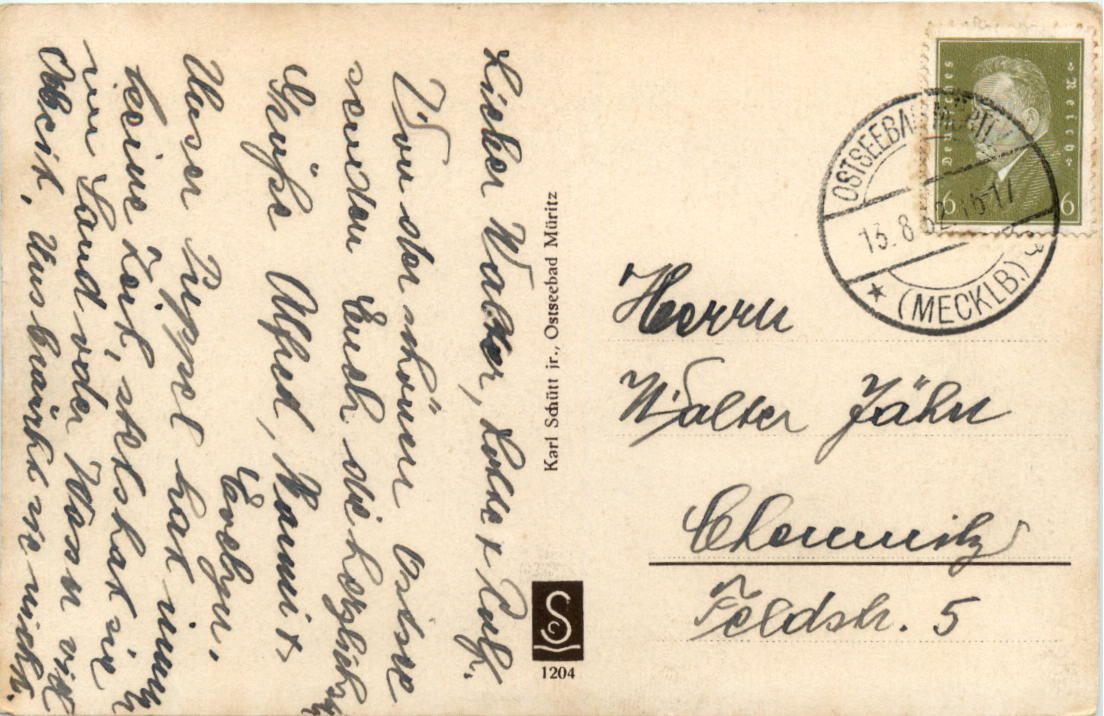 Lieber Walter, Lotte & Rolf.
Von der schönen Ostsee
senden Euch die herzlichsten
Grüße Alfred, Nanni &
Evchen.
Unser Püppel hat immer
keine Zeit, stets hat sie
im Sand oder Wasser viel
Arbeit, Uns braucht sie nicht.
Karl Schütt jr., Ostseebad Müritz
S
1204
Deutsches Reich
6 6
OSTSEEBAD MÜRITZ
13.8.32.16-17
★ (MECKLB.)
Herrn
Walter Jähn
Chemnitz
Feldstr. 5